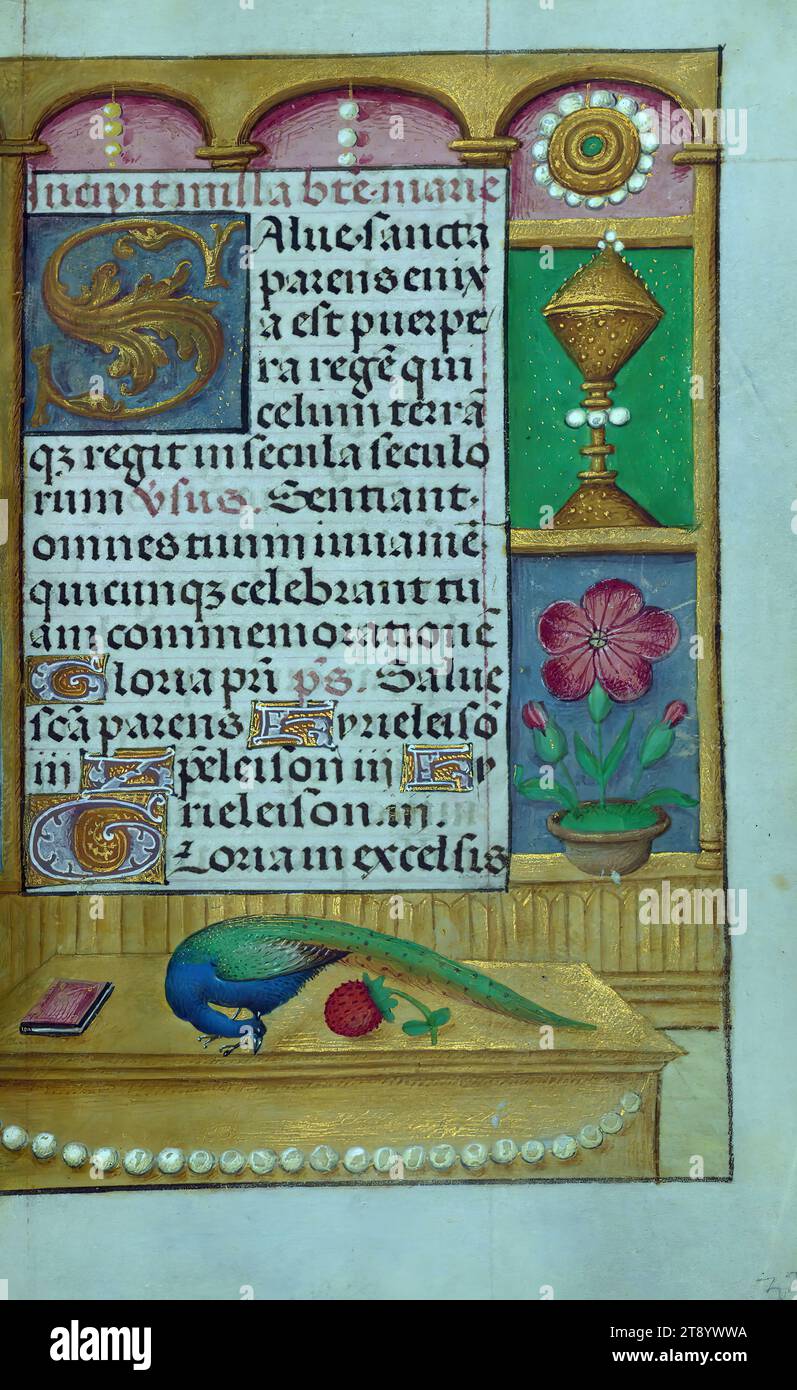 Incipit missa bte·marie
SAlue·sancta
parens enix
a est puerpe
ra regē qui
celum terrā
qȝ regit in secula seculo
rum v̄sus. Sentiant
omnes tuum iuuamē
quicunqȝ celebrant tu
am commemorationē
Gloria pr̄i p̄s. Salue
sc̄a parens Kyrieleisō
iii Xp̄eleison iii Ky
rieleison .iii.
Gloria in excelsis
alamy
Image ID: 2T8YWWA
www.alamy.com